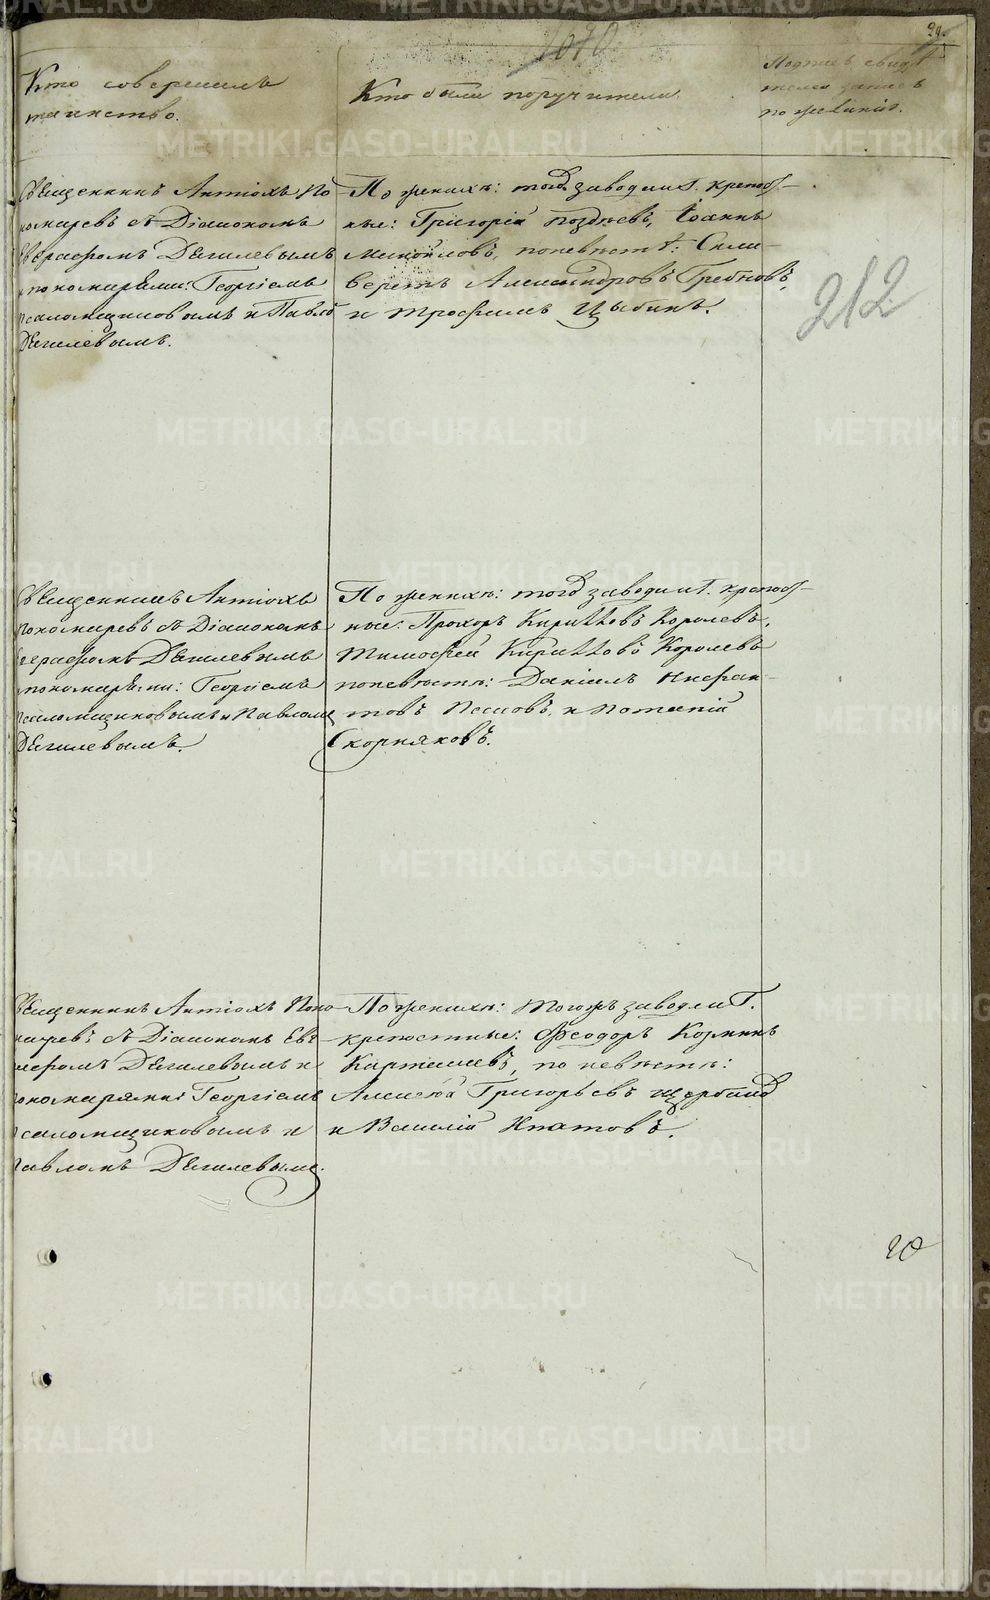 29.
1070
Кто совершилъ
таинство.
Кто были поручители.
Подпись свидѣ
телей записи
по желанію.
Священникъ Антіохъ По
номаревъ съ Діакономъ
Евграфомъ Дягилевымъ
и пономарями: Георгіемъ
Псаломщиковымъ и Павло
Дягилевымъ.
По женихѣ: тогоже завода г. крепост-
ные: Григорій Поздѣевъ, Іоаннъ
Михайловъ, по невѣстѣ: Сили-
верстъ Александровъ Гребновъ,
и Трофимъ Цыбинъ.
212
Священникъ Антіохъ
Пономаревъ съ Діакономъ
Евграфомъ Дягилевымъ
и пономарями: Георгіемъ
Псаломщиковымъ и Павломъ
Дягилевымъ.
По женихѣ: тогоже завода г. крепост-
ные: Прохоръ Кирилловъ Королевъ,
Тимофей Кирилловъ Королевъ
по невѣстѣ: Даніилъ Нифан-
товъ и Потапій
Скорняковъ.
Священникъ Антіохъ Поно
маревъ съ Діакономъ Ев-
графомъ Дягилевымъ и
пономарями: Георгіемъ
Псаломщиковымъ и
Павломъ Дягилевымъ.
По женихѣ: тогожъ завода г.
крепостные: Феодоръ Козминъ
Карташевъ, по невѣстѣ:
Алексѣй Григорьевъ Щербаковъ
и Василій Ипатовъ.
20
METRIKI.GASO-URAL.RU